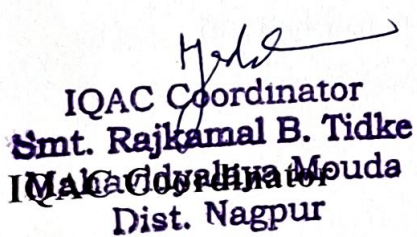 IQAC Coordinator
Smt. Rajkamal B. Tidke
Mahavidyalaya Mouda
IQAC Coordinator
Dist. Nagpur